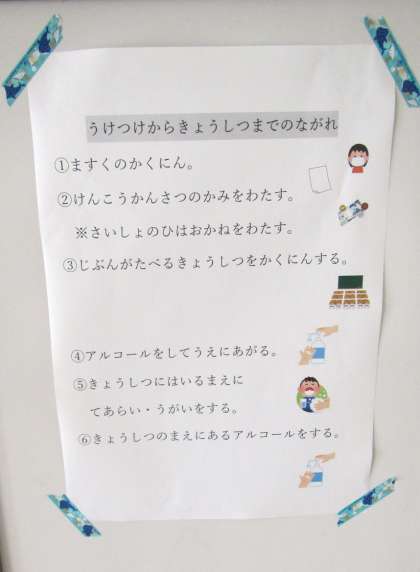 うけつけからきょうしつまでのながれ
①ますくのかくにん。
②けんこうかんさつのかみをわたす。
※さいしょのひはおかねをわたす。
③じぶんがたべるきょうしつをかくにんする。
④アルコールをしてうえにあがる。
⑤きょうしつにはいるまえに
てあらい・うがいをする。
⑥きょうしつのまえにあるアルコールをする。